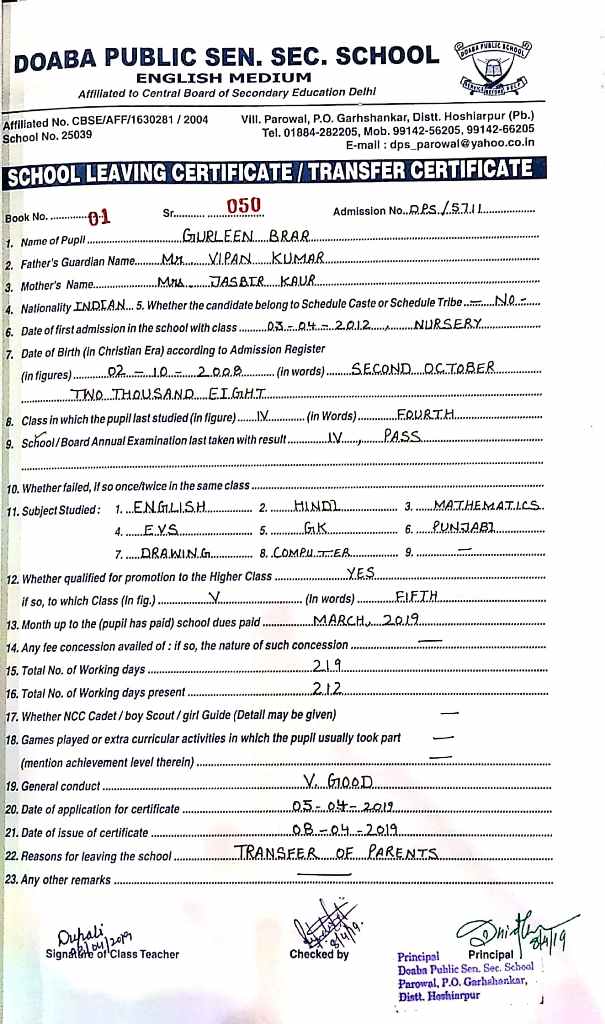 DOABA PUBLIC SEN. SEC. SCHOOL
DOABA PUBLIC SCHOOL
ENGLISH MEDIUM
Affiliated to Central Board of Secondary Education Delhi
Affiliated No. CBSE/AFF/1630281 / 2004
School No. 25039
Vill. Parowal, P.O. Garhshankar, Distt. Hoshiarpur (Pb.)
Tel. 01884-282205, Mob. 99142-56205, 99142-66205
E-mail : dps_parowal@yahoo.co.in
SCHOOL LEAVING CERTIFICATE / TRANSFER CERTIFICATE
Book No. 01 Sr. 050 Admission No. DPS/5711
1. Name of Pupil GURLEEN BRAR
2. Father's Guardian Name Mr. VIPAN KUMAR
3. Mother's Name Mrs. JASBIR KAUR
4. Nationality INDIAN 5. Whether the candidate belong to Schedule Caste or Schedule Tribe - NO -
6. Date of first admission in the school with class 03-04-2012, NURSERY
7. Date of Birth (in Christian Era) according to Admission Register
(in figures) 02-10-2008 (in words) SECOND OCTOBER
TWO THOUSAND EIGHT
8. Class in which the pupil last studied (in figure) IV (in Words) FOURTH
9. School / Board Annual Examination last taken with result IV, PASS
10. Whether failed, if so once/twice in the same class
11. Subject Studied : 1. ENGLISH 2. HINDI 3. MATHEMATICS
4. EVS 5. GK 6. PUNJABI
7. DRAWING 8. COMPUTER 9. —
12. Whether qualified for promotion to the Higher Class YES
if so, to which Class (In fig.) V (In words) FIFTH
13. Month up to the (pupil has paid) school dues paid MARCH, 2019
14. Any fee concession availed of : if so, the nature of such concession —
15. Total No. of Working days 219
16. Total No. of Working days present 212
17. Whether NCC Cadet / boy Scout / girl Guide (Detail may be given) —
18. Games played or extra curricular activities in which the pupil usually took part —
(mention achievement level therein) —
19. General conduct V. GOOD
20. Date of application for certificate 05-04-2019
21. Date of issue of certificate 08-04-2019
22. Reasons for leaving the school TRANSFER OF PARENTS
23. Any other remarks —
8/4/19. 8/4/19
Signature of Class Teacher Checked by Principal
Principal
Doaba Public Sen. Sec. School
Parowal, P.O. Garhshankar,
Distt. Hoshiarpur